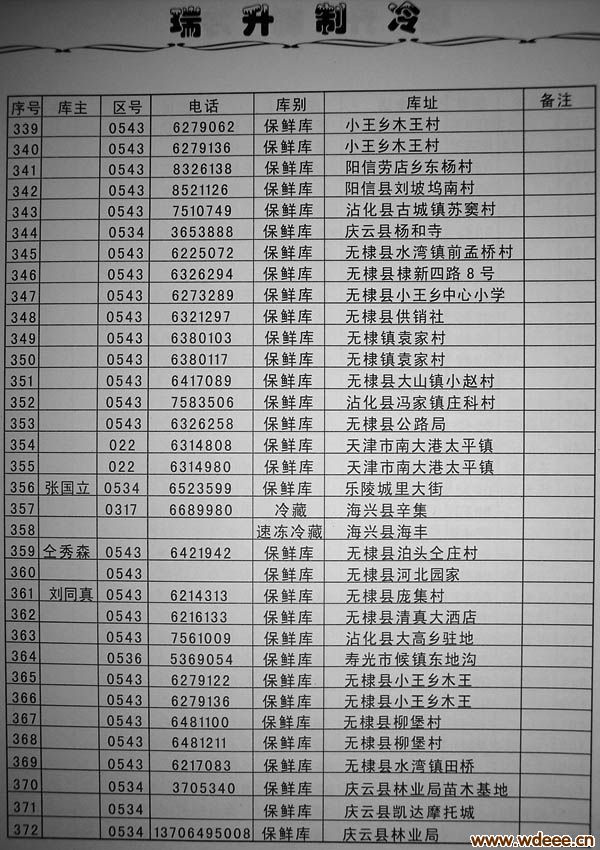 瑞升制冷
序号 库主 区号 电话 库别 库址 备注
339 0543 6279062 保鲜库 小王乡木王村
340 0543 6279136 保鲜库 小王乡木王村
341 0543 8326138 保鲜库 阳信劳店乡东杨村
342 0543 8521126 保鲜库 阳信县刘坡坞南村
343 0543 7510749 保鲜库 沾化县古城镇苏窦村
344 0534 3653888 保鲜库 庆云县杨和寺
345 0543 6225072 保鲜库 无棣县水湾镇前孟桥村
346 0543 6326294 保鲜库 无棣县棣新四路8号
347 0543 6273289 保鲜库 无棣县小王乡中心小学
348 0543 6321297 保鲜库 无棣县供销社
349 0543 6380103 保鲜库 无棣镇袁家村
350 0543 6380117 保鲜库 无棣镇袁家村
351 0543 6417089 保鲜库 无棣县大山镇小赵村
352 0543 7583506 保鲜库 沾化县冯家镇庄科村
353 0543 6326258 保鲜库 无棣县公路局
354 022 6314808 保鲜库 天津市南大港太平镇
355 022 6314980 保鲜库 天津市南大港太平镇
356 张国立 0534 6523599 保鲜库 乐陵城里大街
357 0317 6689980 冷藏 海兴县辛集
358 速冻冷藏 海兴县海丰
359 仝秀森 0543 6421942 保鲜库 无棣县泊头仝庄村
360 0543 保鲜库 无棣县河北园家
361 刘同真 0543 6214313 保鲜库 无棣县庞集村
362 0543 6216133 保鲜库 无棣县清真大洒店
363 0543 7561009 保鲜库 沾化县大高乡驻地
364 0536 5369054 保鲜库 寿光市候镇东地沟
365 0543 6279122 保鲜库 无棣县小王乡木王
366 0543 6279136 保鲜库 无棣县小王乡木王
367 0543 6481100 保鲜库 无棣县柳堡村
368 0543 6481211 保鲜库 无棣县柳堡村
369 0543 6217083 保鲜库 无棣县水湾镇田桥
370 0534 3705340 保鲜库 庆云县林业局苗木基地
371 0534 保鲜库 庆云县凯达摩托城
372 0534 13706495008 保鲜库 庆云县林业局
www.wdeee.cn